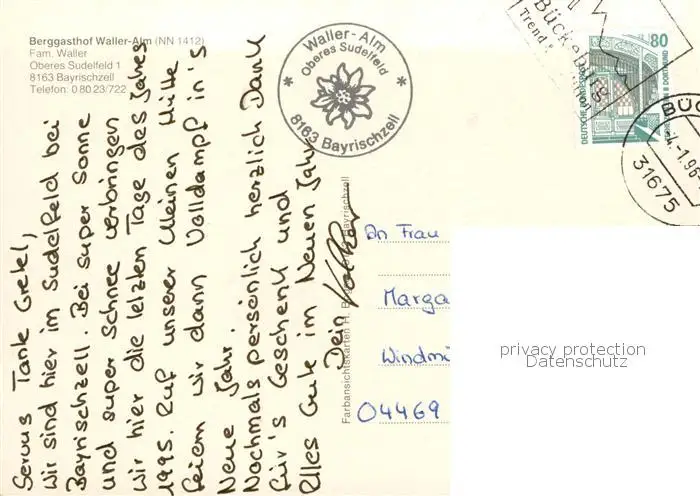 Berggasthof Waller-Alm (NN 1412)
Fam. Waller
Oberes Sudelfeld 1
8163 Bayrischzell
Telefon: 0 80 23/722
Servus Tante Gretel,
Wir sind hier im Sudelfeld bei
Bayrischzell. Bei super Sonne
und super Schnee verbringen
wir hier die letzten Tage des Jahres
1995. Auf unserer kleinen Hütte
feiern wir dann Volldampf in's
Neue Jahr.
Nochmals persönlich herzlich Dank
für's Geschenk und
Alles Gute im Neuen Jahr
Dein Volker
Waller-Alm
Oberes Sudelfeld
8163 Bayrischzell
Farbansichtskarten H.
Bayrischzell
Bückeburg
80
DEUTSCHE BUNDESPOST
DORTMUND
BÜC
-4.-1.96-
31675
An Frau
Marga
Windmü
04469
privacy protection
Datenschutz